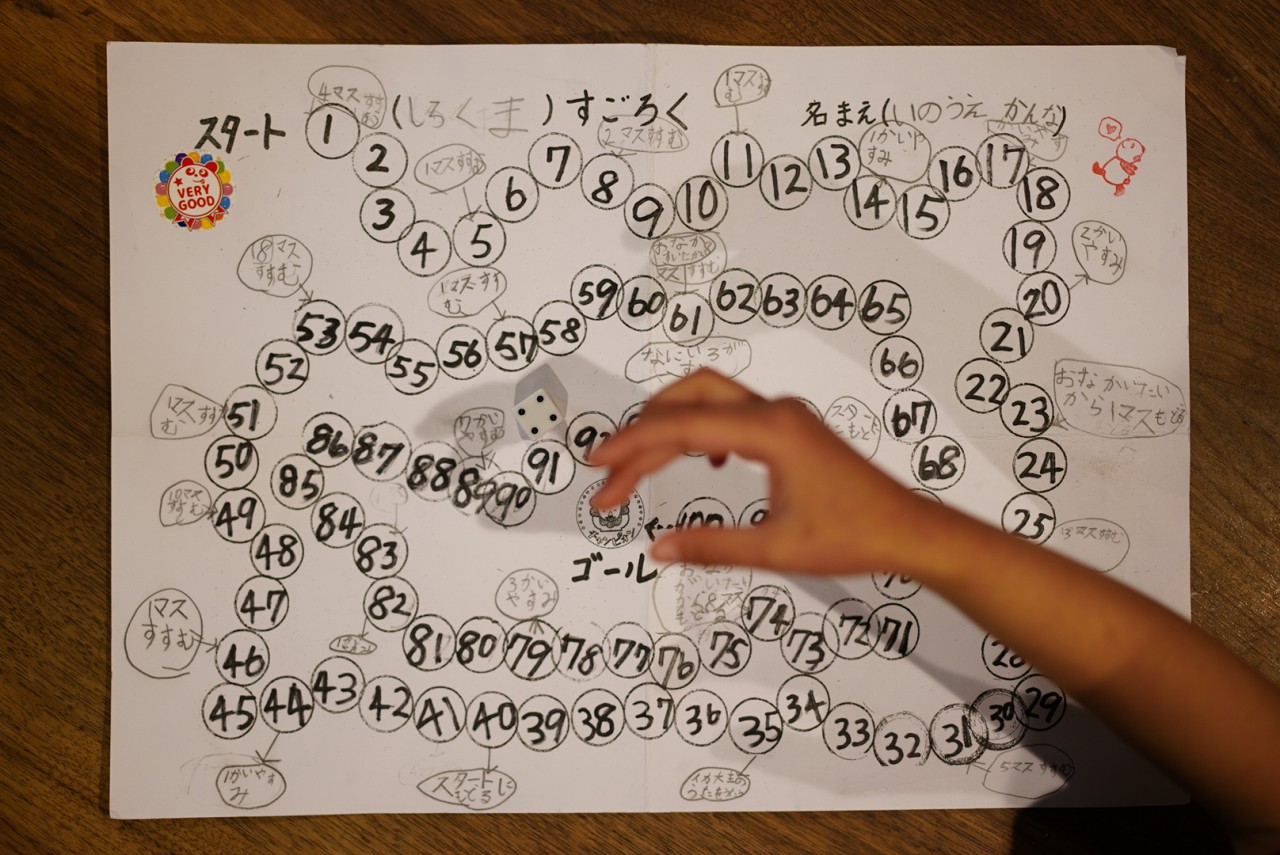 スタート
(しろくま)すごろく
名まえ(いのうえ かんな)
VERY
GOOD
4マスすす
む
1マスすすむ
2マスすすむ
1マスす
む
1かいや
すみ
2かい
やすみ
おなかいたい
から1マスもどる
13マスすすむ
5マスすすむ
スタートに
もどる
1かいやす
み
1マス
すすむ
10マス
すすむ
1マスすす
む
18マス
すすむ
1マスすす
む
おなか
すいたから
マスすすむ
なにいろが
3かい
やすみ
1 2 3 4 5 6 7 8 9 10 11 12 13 14 15 16 17 18 19 20
21 22 23 24 25
29 30 31 32 33 34 35 36 37 38 39 40 41 42 43 44 45
46 47 48 49 50 51 52 53 54 55 56 57 58 59 60 61 62 63 64 65
66 67 68
71 72 73 74 75 76 77 78 79 80 81 82 83 84 85 86 87 88 89 90 91
100
ゴール